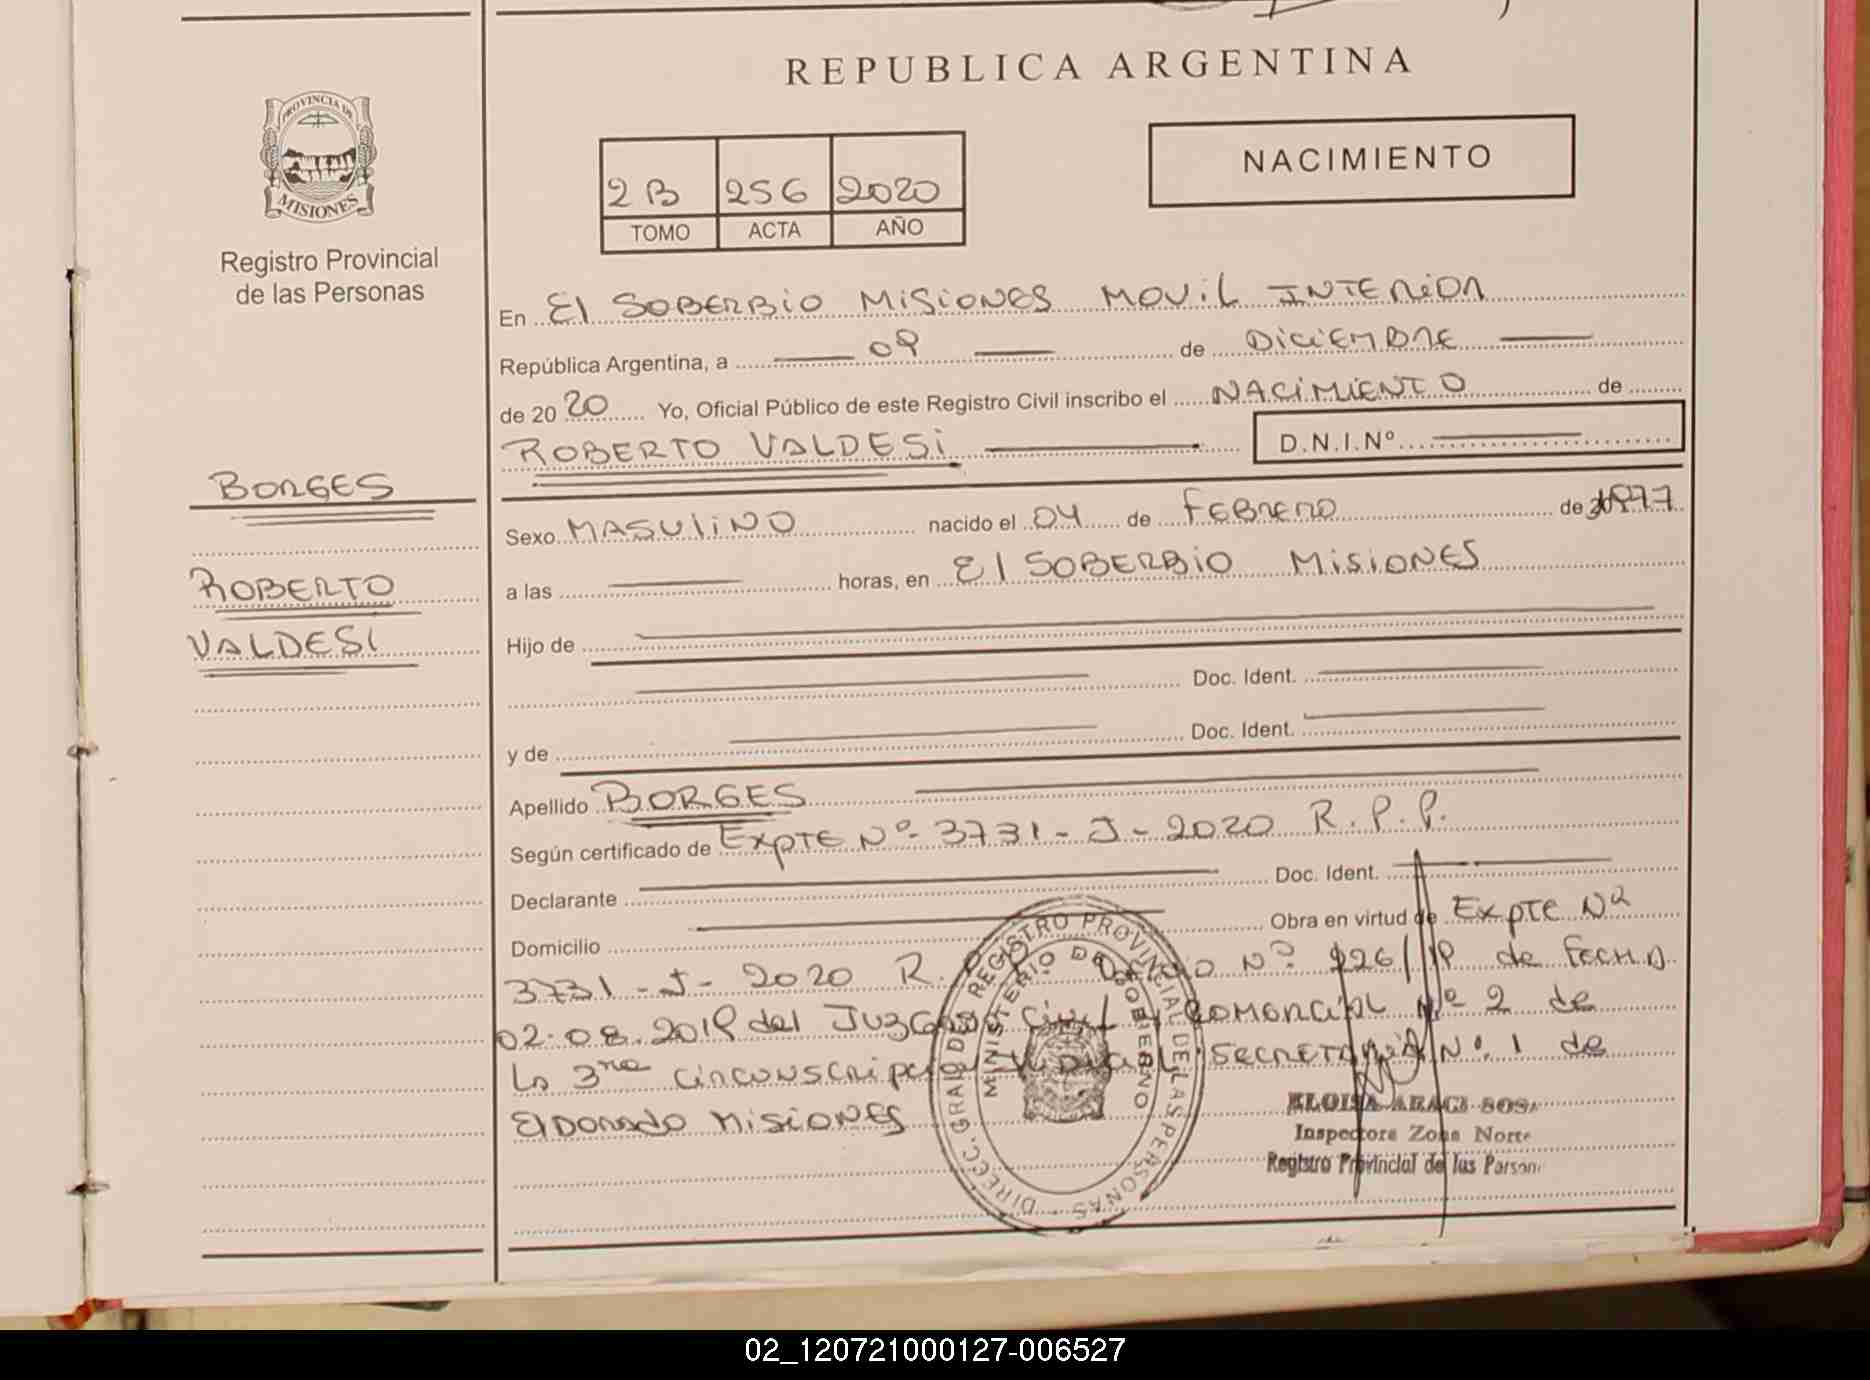 REPUBLICA ARGENTINA
PROVINCIA DE
MISIONES
Registro Provincial
de las Personas
2B 256 2020
TOMO ACTA AÑO
NACIMIENTO
En El SOBERBIO MISIONES MOVIL INTERIOR
República Argentina, a 09 de DICIEMBRE
de 20 20 Yo, Oficial Público de este Registro Civil inscribo el NACIMIENTO de
ROBERTO VALDESI D.N.I.Nº
BORGES
ROBERTO
VALDESI
Sexo MASULINO nacido el 04 de FEBRERO de 1977
a las horas, en El SOBERBIO MISIONES
Hijo de
Doc. Ident.
y de Doc. Ident.
Apellido BORGES
Según certificado de EXPTE Nº 3731-J-2020 R.P.P.
Declarante Doc. Ident.
Domicilio Obra en virtud de EXPTE Nº
3731-J-2020 R. Nº de FECHA
02.08.2019 del JUZGADO Civil y COMERCIAL Nº 2 de
La 3ra CIRCUNSCRIPCION SECRETARIA Nº 1 de
ElDORADO MISIONES
DIRECC. GRAL DEL REGISTRO PROVINCIAL DE LAS PERSONAS
MINISTERIO DE GOBIERNO
ELOISA ARACI SOSA
Inspectora Zona Norte
Registro Provincial de las Person
02_120721000127-006527